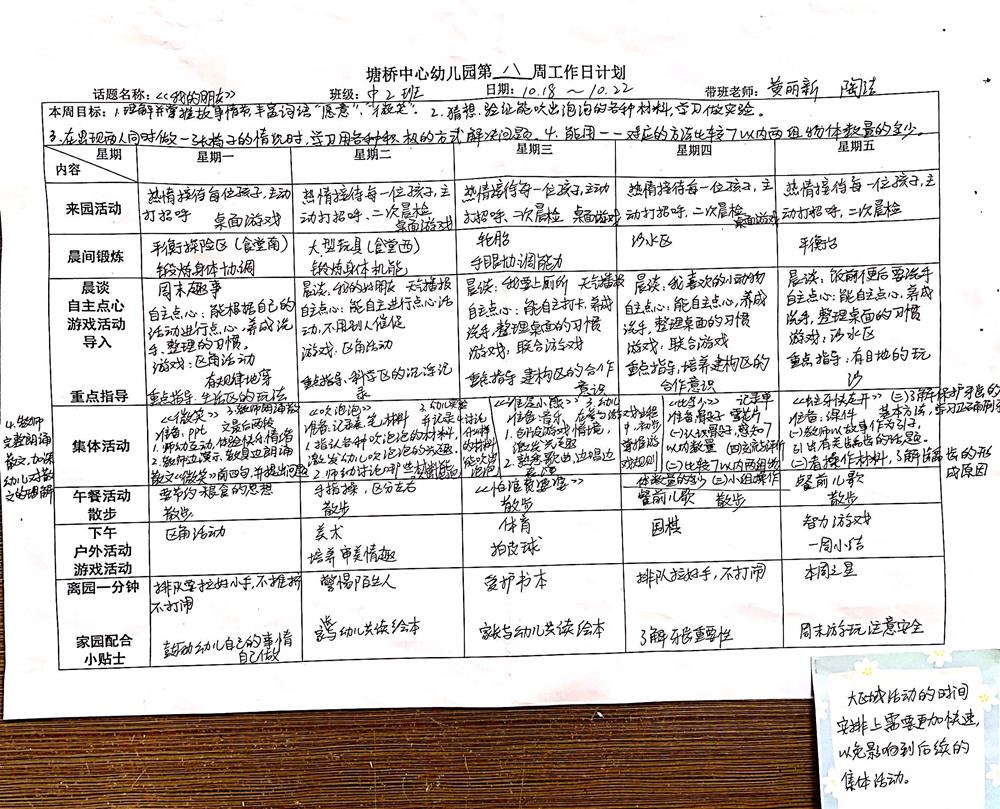 塘桥中心幼儿园第 八 周工作日计划
话题名称:《我的朋友》 班级: 中2班 日期: 10.18 ~ 10.22 带班老师: 黄丽新 陶洁
本周目标: 1.理解并掌握故事情节,丰富词语“愿意”、 2.猜想、验证能吹出泡泡的各种材料,学习做实验。
3.在出现两人同时做一张椅子的情况时,学习用各种积极的方式解决问题。4.能用一一对应的方法比较7以内两组物体数量的多少。
星期 星期一 星期二 星期三 星期四 星期五
内容
来园活动
热情接待每位孩子,主动打招呼 桌面游戏
热情接待每一位孩子,主动打招呼,二次晨检 桌面游戏
热情接待每一位孩子,主动打招呼,二次晨检 桌面游戏
热情接待每一位孩子,主动打招呼,二次晨检 桌面游戏
热情接待每一位孩子,主动打招呼,二次晨检
晨间锻炼
平衡探险区(食堂南)
锻炼身体协调
大型玩具(食堂西)
锻炼身体机能
轮胎
手眼协调能力
沙水区
平衡台
晨谈
自主点心
游戏活动
导入
重点指导
周末趣事
自主点心:能根据自己的
活动进行点心,养成洗
手、整理的习惯。
游戏:区角活动
有规律地等
重点指导:生活区的玩法
晨谈:我的好朋友 天气播报
自主点心:能自主进行点心活
动,不用别人催促
游戏:区角活动
重点指导:科学区的沉浮记
录
晨谈:我要上厕所 天气播报
自主点心:能自主打卡,养成
洗手,整理桌面的习惯
游戏:联合游戏
重点指导 建构区的合作
意识
晨谈:我喜欢的小动物
自主点心:能自主点心,养成
洗手,整理桌面的习惯
游戏:联合游戏
重点指导:培养建构区的
合作意识
晨谈:饭前便后要洗手
自主点心:能自主点心,养成
洗手,整理桌面的习惯
游戏:沙水区
重点指导:有目的地玩
沙
集体活动
《微笑》 3.教师朗诵散
文最后两段
准备:ppt
1.师幼互动,体验快乐情绪
2.教师边演示教具边朗诵
散文《微笑》前四句,并提出问题
4.教师
完整朗诵
散文,加深
幼儿对散
文的理解
《吹泡泡》 3.幼儿实验
并记录
准备:记录表,笔,材料
1.指认各种吹泡泡的材料,
激发幼儿吹泡泡的兴趣
2.师幼讨论哪些材料能吹泡泡
准备:音乐
1.创设游戏情境,
激发兴趣
2.熟悉歌曲,边唱边
记录单
(三)小组操作
(一)教师以故事作为引子,
(二)看操作材料,了解蛀牙的形
成原因
午餐活动
散步
要节约粮食的思想
散步
手指操,区分左右
散步
散步
餐前儿歌 散步
餐前儿歌
散步
下午
户外活动
游戏活动
区角活动
美术
培养审美情趣
体育
拍皮球
围棋
智力游戏
一周小结
离园一分钟
排队要拉好小手,不推挤
不打闹
警惕陌生人
爱护书本
排队拉好手,不打闹
本周之星
家园配合
小贴士
鼓励幼儿自己的事情
自己做
家长与幼儿共读绘本
家长与幼儿共读绘本
了解牙齿重要性
周末游玩注意安全
大区域活动的时间
安排上需要更加快速,
以免影响到后续的
集体活动。